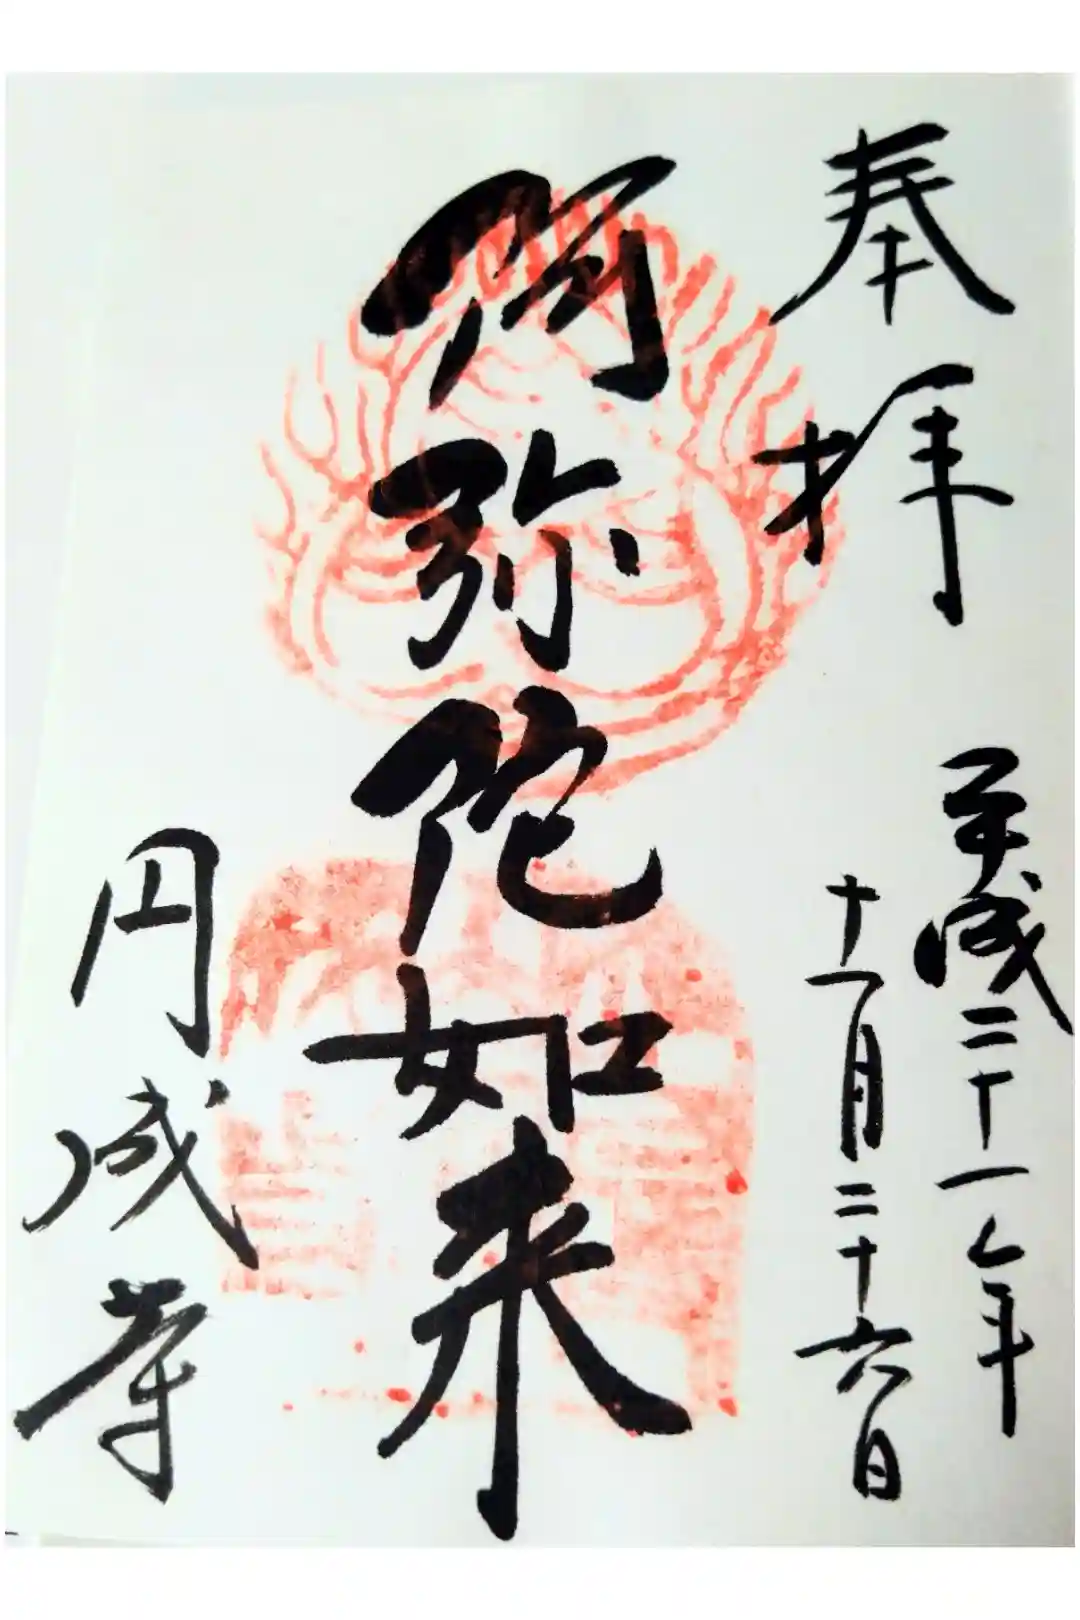 奉拝
平成二十一年
十一月二十六日
阿弥陀如来
円成寺